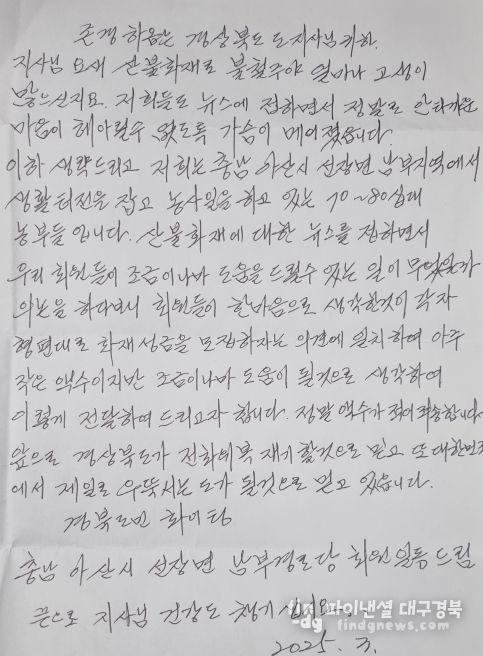 존경하옵는 경상북도 도지사님 귀하.
지사님 요새 산불화재로 불철주야 얼마나 고생이
많으신지요. 저희들도 뉴스에 접하면서 정말로 안타까운
마음이 헤아릴수 없도록 가슴이 메어졌습니다.
이하 생략드리고 저희는 충남 아산시 선장면 남부지역에서
생활터전을 잡고 농사일을 하고 있는 70~80십대
농부들 입니다. 산불화재에 대한 뉴스를 접하면서
우리 회원들이 조금이나마 도움을 드릴수 있는 일이 무엇일까
의논을 하다보니 회원들이 한마음으로 생각한것이 각자
형편대로 화재성금을 모집하자는 의견에 일치하여 아주
작은 액수이지만 조금이나마 도움이 될것으로 생각하여
이렇게 전달하여 드리고자 합니다. 정말 액수가 적어 죄송합니다.
앞으로 경상북도가 전화위복 재기할것으로 믿고 또 대한민국
에서 제일로 우뚝서는 도가 될것으로 믿고 있습니다.
경북도민 화이팅
충남 아산시 선장면 남부경로당 회원일동 드림
끝으로 지사님 건강도 챙기십시요
파이낸셜 대구경북
findgnews.com
2025. 3.